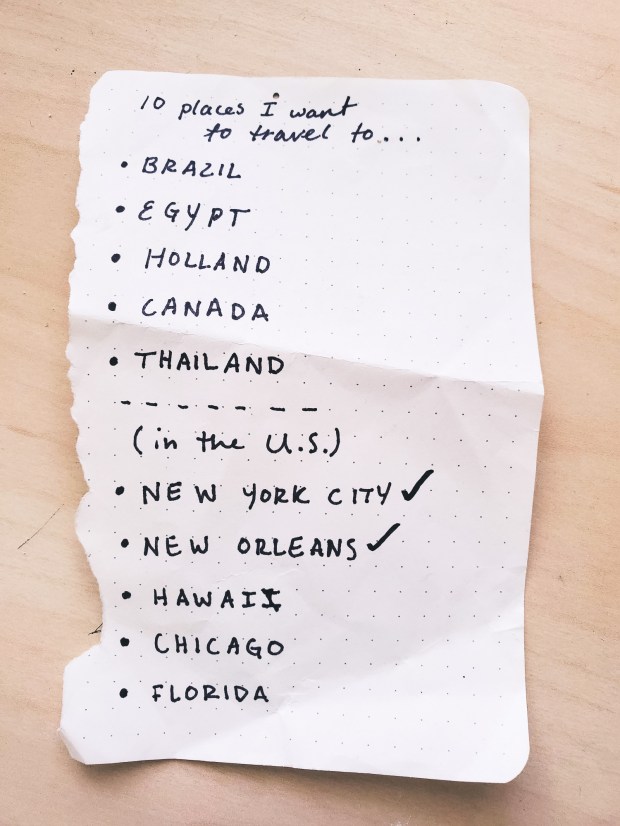 10 places I want
to travel to...
• BRAZIL
• EGYPT
• HOLLAND
• CANADA
• THAILAND
- - - - - - -
(in the U.S.)
• NEW YORK CITY ✓
• NEW ORLEANS ✓
• HAWAII
• CHICAGO
• FLORIDA